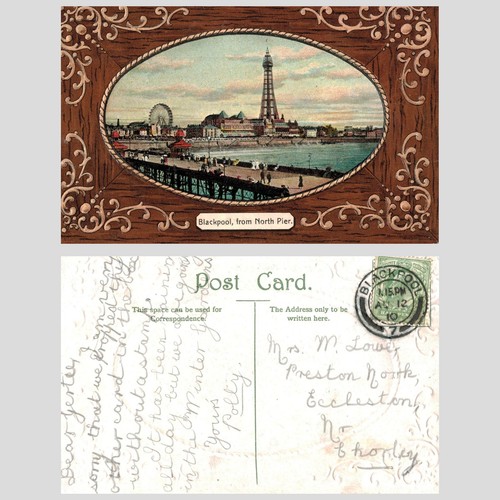 Blackpool, from North Pier.
Post Card.
This space can be used for
Correspondence.
The Address only to be
written here.
BLACKPOOL
1.15 PM
12
10
7
Dear Sister,
sorry that we
other card
without a stamp
It has been
all day but we are going
in the Winter Gardens
Yours
Polly
Mrs. M. Lowe,
Preston Nook,
Eccleston,
Nr
Chorley